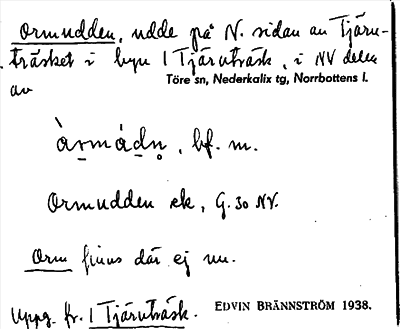 Ormudden, udde på N. sidan av Tjäru-
träsket i byn 1 Tjäruträsk, i NV delen
av
Töre sn, Nederkalix tg, Norrbottens l.
àr̥mádn̥, bf. m.
Ormudden ek, G. 30 NV.
Orm finns där ej nu.
Uppg. fr. 1 Tjäruträsk.
EDVIN BRÄNNSTRÖM 1938.